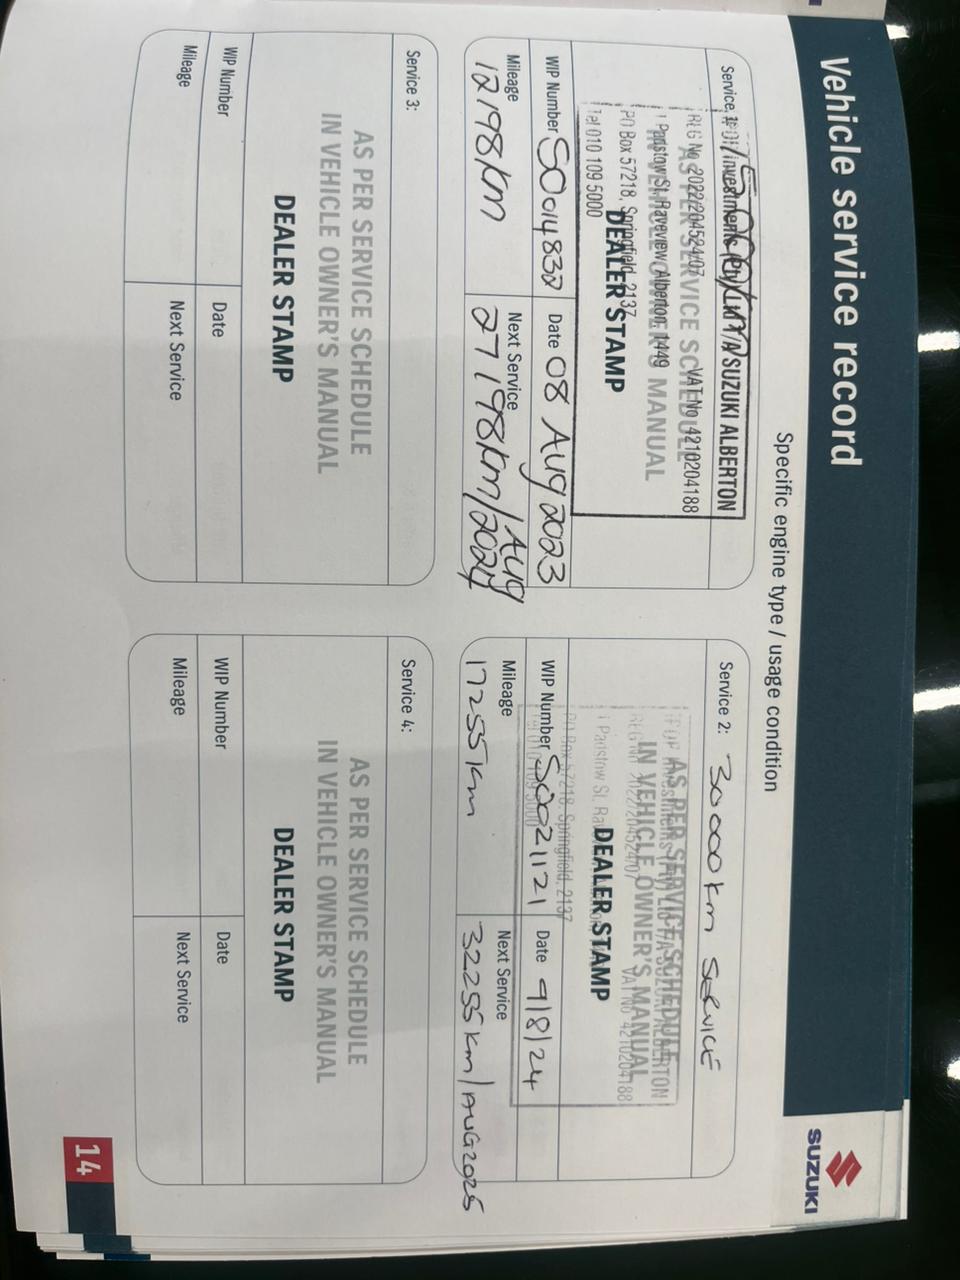 Vehicle service record
SUZUKI
Specific engine type / usage condition
Service 1:
SUZUKI ALBERTON
REG No 2022/204524/07 VAT No 4210204188
AS PER SERVICE SCHEDULE
IN VEHICLE OWNER'S MANUAL
1 Padstow St, Raceview, Alberton, 1449
DEALER STAMP
PO Box 57218, Springfield, 2137
Tel 010 109 5000
WIP Number S0014832 Date 08 Aug 2023
Mileage 12198km
Next Service 27198km/Aug 2024
Service 2: 30000km SERVICE
AS PER SERVICE SCHEDULE
IN VEHICLE OWNER'S MANUAL
REG No 2022/204524/07 VAT No 4210204188
DEALER STAMP
1 Padstow St,
PO Box 57218, Springfield, 2137
Tel 010 109 5000
WIP Number S0021121 Date 9/8/24
Mileage 17255km
Next Service 32255km/AUG2025
Service 3:
AS PER SERVICE SCHEDULE
IN VEHICLE OWNER'S MANUAL
DEALER STAMP
WIP Number Date
Mileage Next Service
Service 4:
AS PER SERVICE SCHEDULE
IN VEHICLE OWNER'S MANUAL
DEALER STAMP
WIP Number Date
Mileage Next Service
14